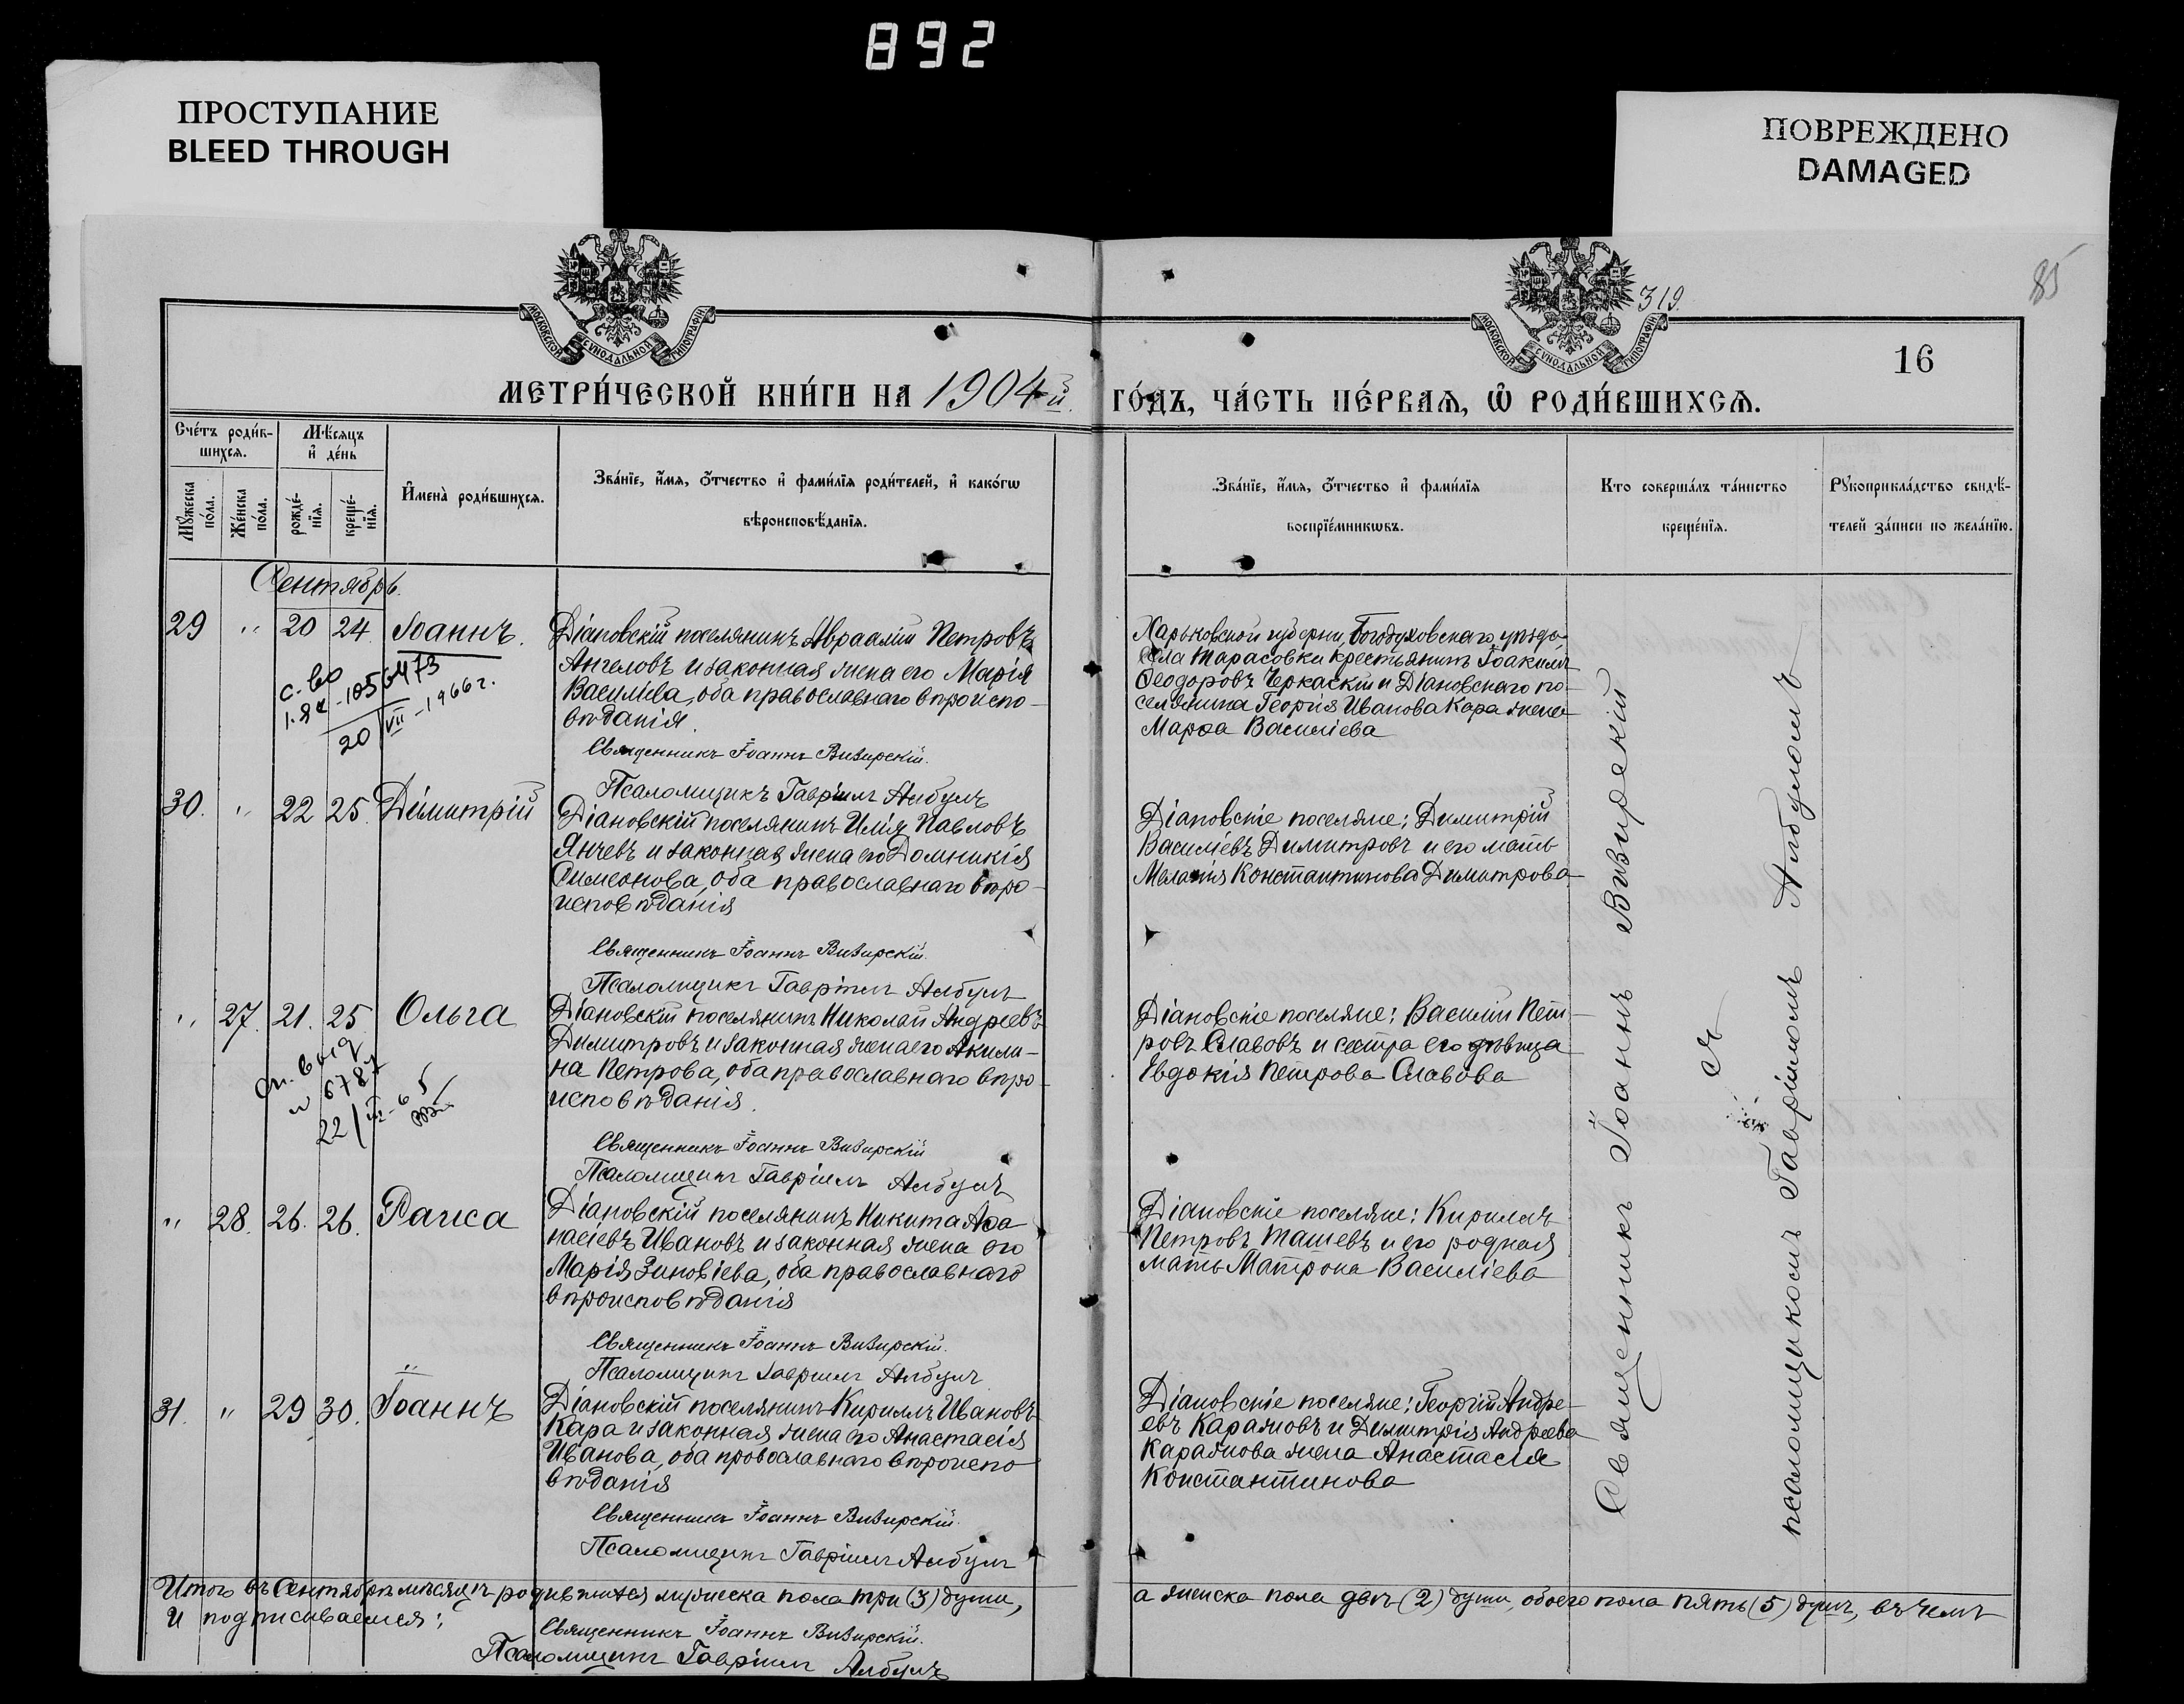 892
ПРОСТУПАНИЕ
BLEED THROUGH
ПОВРЕЖДЕНО
DAMAGED
85
319.
16
МОСКОВСКОЙ СУНОДАЛЬНОЙ ТИПОГРАФІИ
МОСКОВСКОЙ СУНОДАЛЬНОЙ ТИПОГРАФІИ
МЕТРИ́ЧЕСКОЙ КНИ́ГИ НА 1904й. ГО́ДЪ, ЧА́СТЬ ПЕ́РВАѦ, Ѽ РОДИ́ВШИХСѦ.
Сче́тъ роди́вшихсѧ.
Мѣ́сѧцъ и҆ де́нь
Мꙋ́жеска по́ла.
Же́нска по́ла.
рожде́нїѧ.
креще́нїѧ.
И҆мена̀ роди́вшихсѧ.
Зва́нїе, и҆́мѧ, ѻ҆́тчество и҆ фами́лїѧ роди́телей, и҆ како́гѡ
вѣроисповѣ́данїѧ.
Зва́нїе, и҆́мѧ, ѻ҆́тчество и҆ фами́лїѧ
воспрїе́мникѡвъ.
Кто соверша́лъ та́инство
креще́нїѧ.
Рꙋкоприкла́дство свидѣ́-
телей за́писи по жела́нїю.
Сентябрь.
29 " 20 24 Іоаннъ.
Діановскій поселянинъ Авраамій Петровъ
Ангеловъ и законная жена его Марія
Василіева, оба православнаго вѣроиспо-
вѣданія.
Священникъ Іоаннъ Визирскій.
Псаломщикъ Гавріилъ Албулъ
Харьковской губерніи, Богодуховскаго уѣзда
села Тарасовки крестьянинъ Іоакимъ
Ѳеодоровъ Черкаскій и Діановскаго по-
селянина Георгія Иванова Кара жена
Марѳа Василіева
с-во
1-яя -1056473
20/VII-1966г.
30. " 22 25. Димитрій
Діановскій поселянинъ Илія Павловъ
Янчевъ и законная жена его Домникія
Симеонова, оба православнаго вѣро-
исповѣданія
Священникъ Іоаннъ Визирскій.
Псаломщикъ Гавріилъ Албулъ
Діановскіе поселяне: Димитрій
Василіевъ Димитровъ и его мать
Меланія Константинова Димитрова
" 27. 21. 25 Ольга
Діановскій поселянинъ Николай Андреевъ
Димитровъ и законная жена его Акили-
на Петрова, оба православнаго вѣро-
исповѣданія.
Священникъ Іоаннъ Визирскій
Псаломщикъ Гавріилъ Албулъ
Діановскіе поселяне: Василій Пет-
ровъ Славовъ и сестра его дѣвица
Евдокія Петрова Славова
6787
" 28. 26. 26. Раиса
Діановскій поселянинъ Никита Аѳа-
насіевъ Ивановъ и законная жена его
Марія Зиновіева, оба православнаго
вѣроисповѣданія
Священникъ Іоаннъ Визирскій.
Псаломщикъ Гавріилъ Албулъ
Діановскіе поселяне: Кириллъ
Петровъ Ташевъ и его родная
мать Матрона Василіева
31. " 29 30. Іоаннъ
Діановскій поселянинъ Кириллъ Ивановъ
Кара и законная жена его Анастасія
Иванова, оба православнаго вѣроиспо
вѣданія
Священникъ Іоаннъ Визирскій.
Псаломщикъ Гавріилъ Албулъ
Діановскіе поселяне: Георгій Андре-
евъ Караяновъ и Димитрія Андреева
Караянова жена Анастасія
Константинова
Священникъ Іоаннъ Визирскій
съ
псаломщикомъ Гавріиломъ Албуломъ
Итого въ Сентябрѣ мѣсяцѣ родившихся мужеска пола три (3) души, а женска пола двѣ (2) души, обоего пола пять (5) душъ, въ чемъ
и подписываемся:
Священникъ Іоаннъ Визирскій.
Псаломщикъ Гавріилъ Албулъ